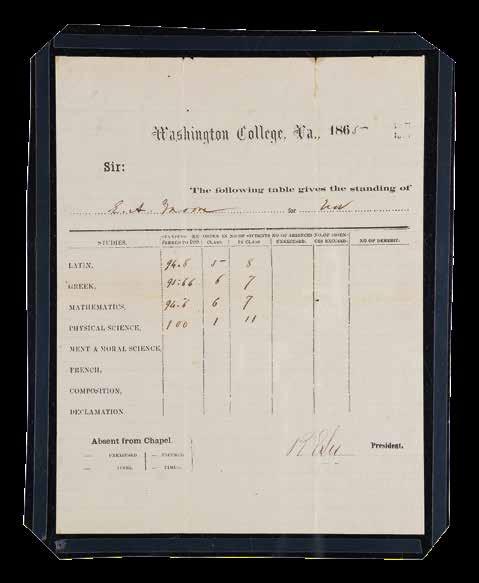 Washington College, Va., 1865
Sir:
The following table gives the standing of
E. A. Moore for Nov
STUDIES. STANDING RE- FERRED TO 100. ORDER IN CLASS NO OF STUDENTS IN CLASS NO OF ABSENCES UNEXCUSED. NO. OF ABSEN- CES EXCUSED. NO OF DEMERIT.
LATIN, 94.8 5 8
GREEK, 95.66 6 7
MATHEMATICS, 94.6 6 7
PHYSICAL SCIENCE, 100 1 11
MENT & MORAL SCIENCE,
FRENCH,
COMPOSITION,
DECLAMATION
Absent from Chapel.
— UNEXCUSED — EXCUSED
— TIMES. — TIMES.
R E Lee President.